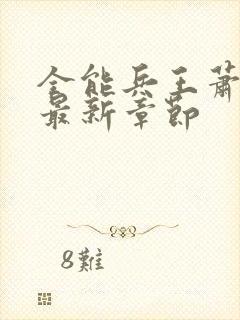 全能兵王蕭
最新章節
8難